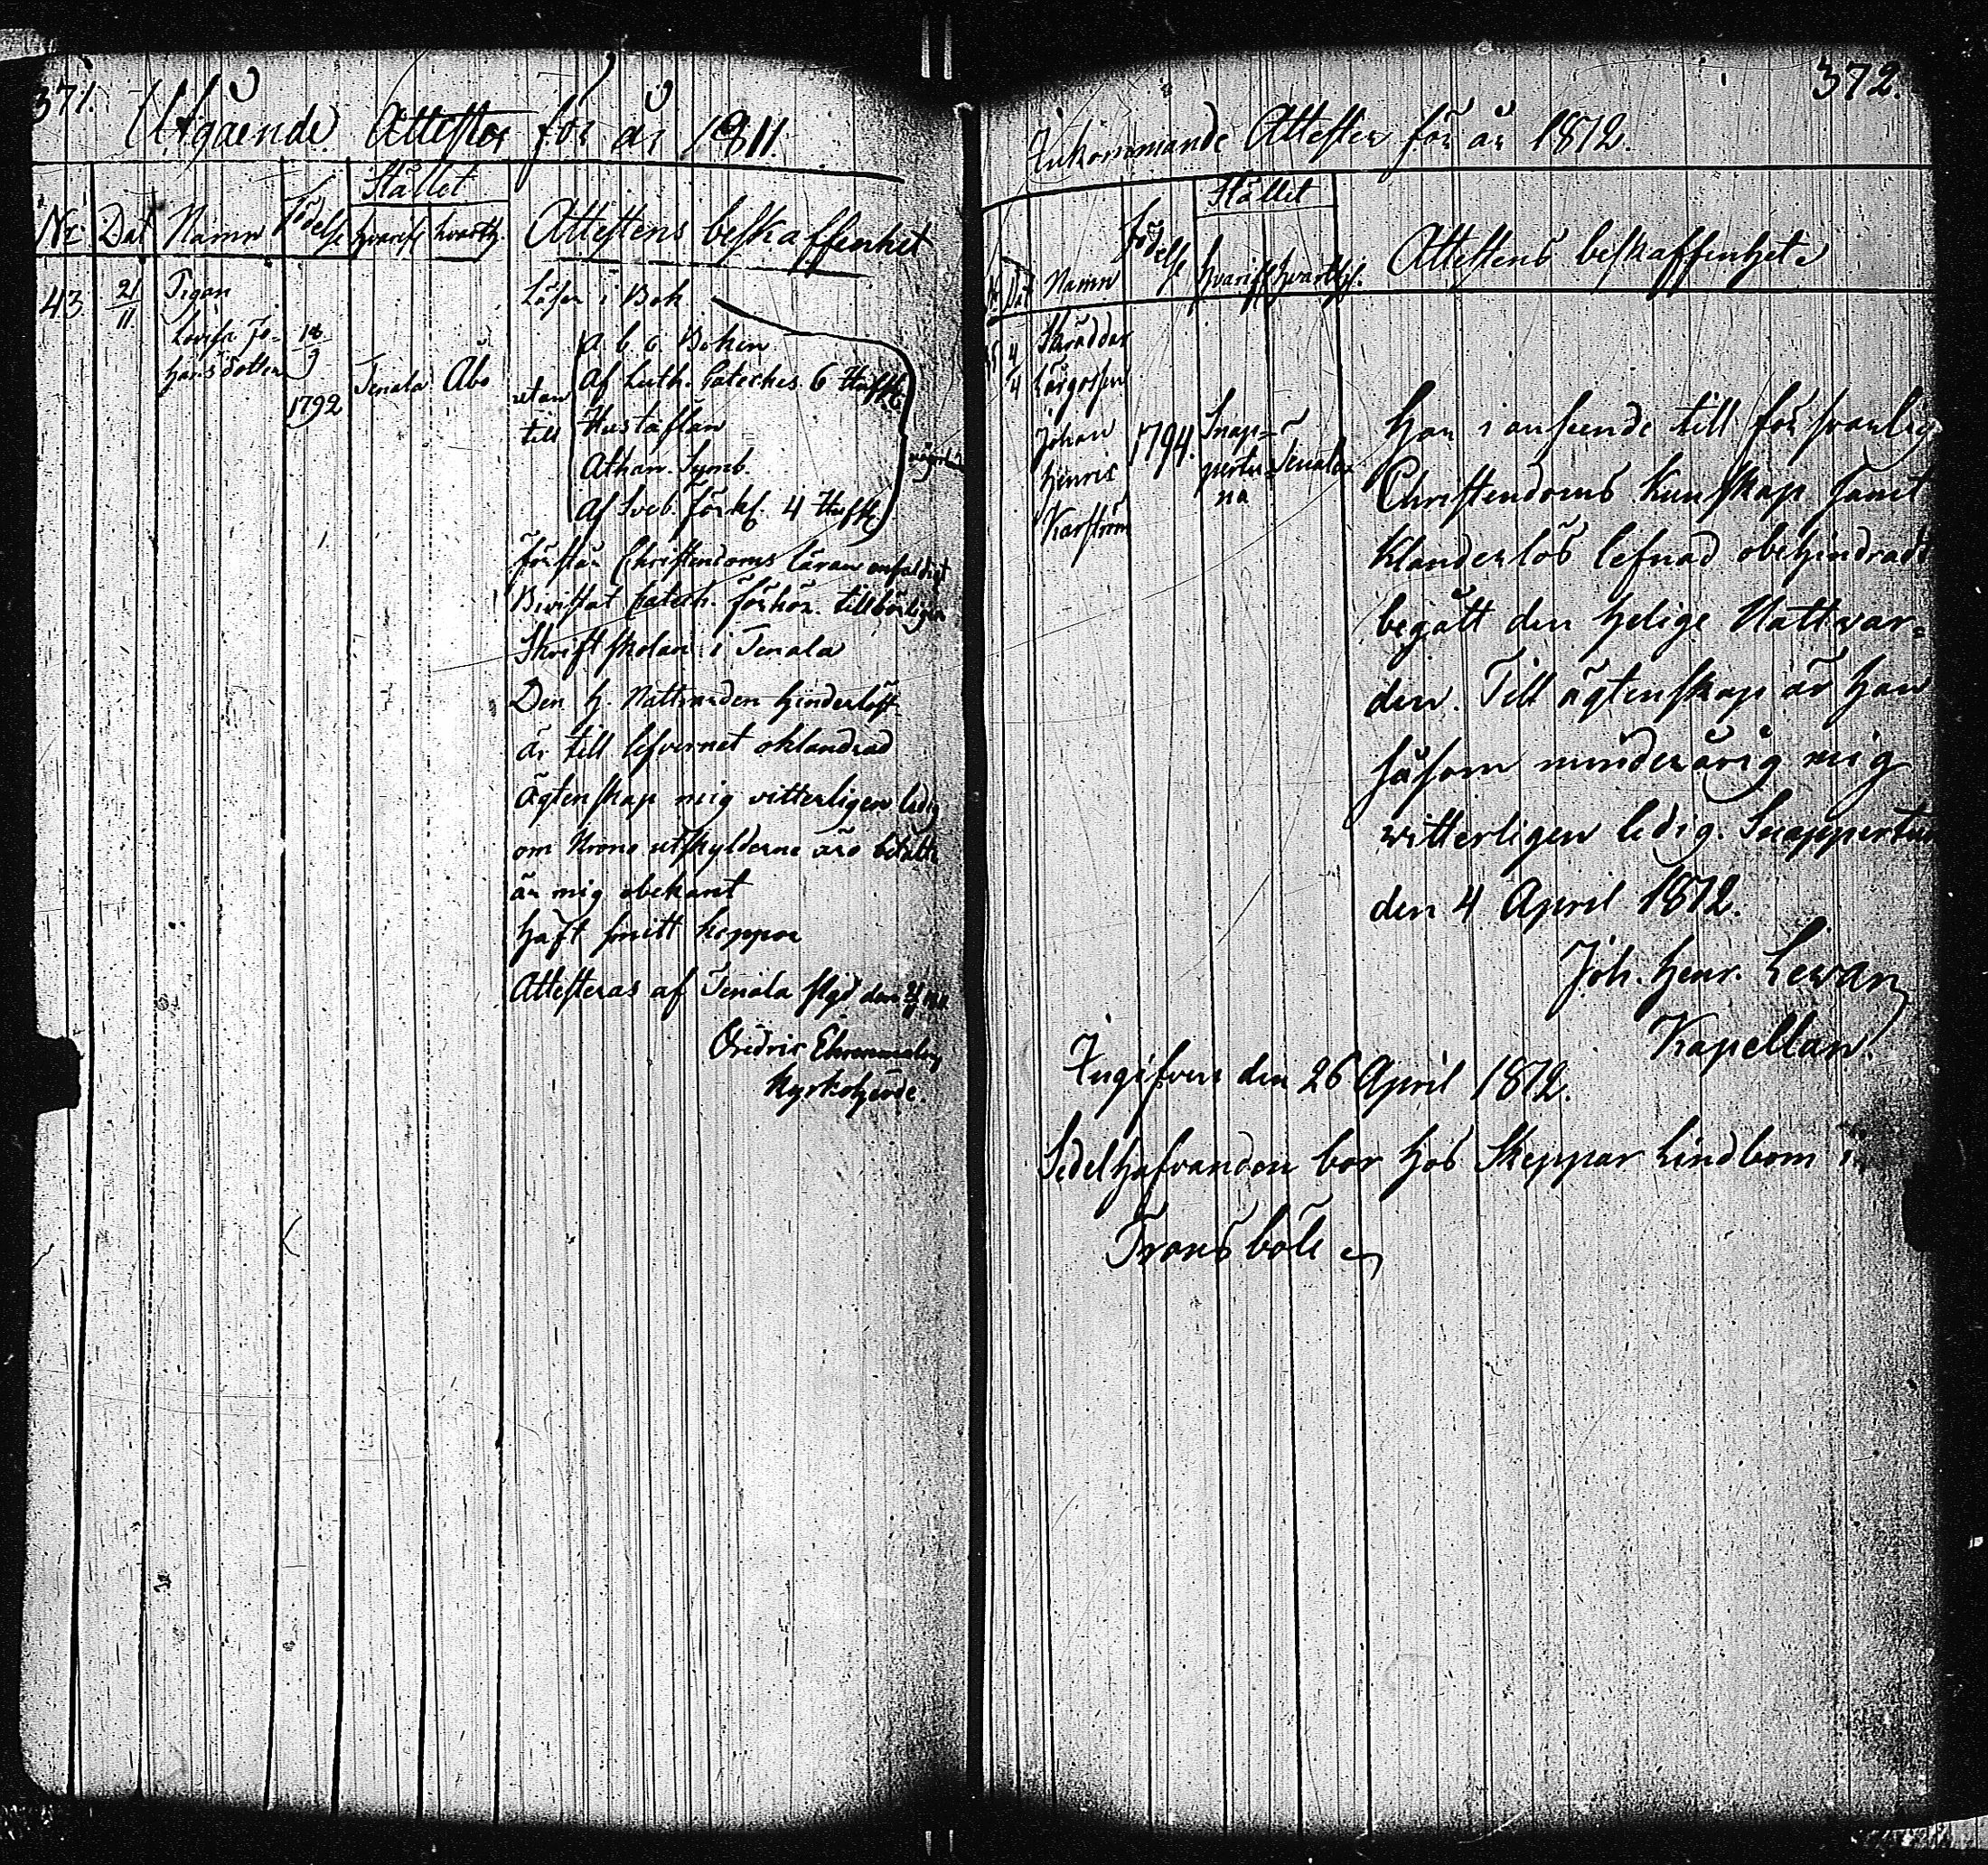 371.
Utgående Attester för år 1811.
Stället
Nr Dat Namn Födelse hvarifr. hvarth. Attestens beskaffenhet
43 21/11 Pigan
Lovisa Jo-
hansdotter
18/9
1792
Tenala Åbo
Läser i Bok
a. b. c. Boken
Af Luth. Catechis. 6 Hufst.
utan
till
Hustaflan
Athan. Symb.
Af Sveb. förkl. 4 Hufst.
Förstår Christendoms läran enfaldigt
Bevistat Catech. förhör. tillbörligen
Skriftskolan i Tenala
Den H. Nattvarden hinderlöst
är till lefvernet oklandrad
Ägtenskap mig vitterligen ledig
om Krono utskylderne äro betalte
är mig obekant
haft smitt koppor
Attesteras af Tenala pgd den
Kyrkoherde.
372.
Inkommande Attester för år 1812.
Stället
Dat Namn Födelse hvarifr. hvarthj. Attestens beskaffenhet
4/4
Skräddar
Lärgossen
Johan
Henric
Karström
1794.
Snap-
pertu-
na
Tenala
Har i anseende till försvarlig
Christendoms Kunskap samt
klanderlös lefnad obehindradt
begått den helige Nattvar-
den. Till ägtenskap är han
såsom minderårig mig
vitterligen ledig. Snappertuna
den 4 April 1812.
Joh. Henr. Levan
Kapellan.
Ingifven den 26 April 1812.
Sedelhafvanden bor hos Skeppar Lindbom i
Trönsböle